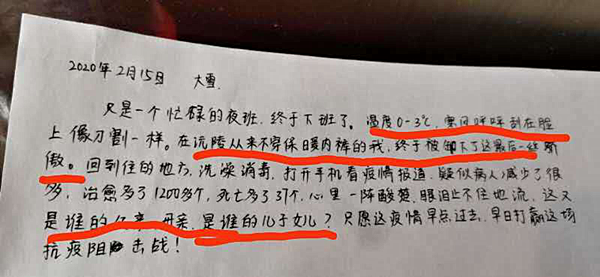 2020年2月15日 大雪
又是一个忙碌的夜班,终于下班了。温度0-3℃,寒风呼呼刮在脸
上像刀割一样。在沅陵从来不穿保暖内裤的我,终于被卸下了这最后一丝骄
傲。回到住的地方,洗澡消毒,打开手机看疫情报道,疑似病人减少了很
多,治愈多了1200多个,死亡多了37个,心里一阵酸楚,眼泪止不住地流,这又
是谁的父亲、母亲,是谁的儿子女儿?只愿这疫情早点过去,早日打赢这场
抗疫阻击战!